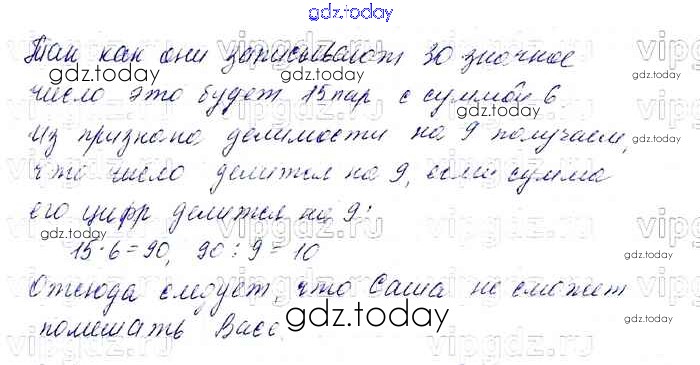 gdz.today
Так как они записывают 30 значное
gdz.today
gdz.today
число это будет 15 пар с суммой 6.
Из признака делимости на 9 получаем,
gdz.today
что число делится на 9, если сумма
его цифр делится на 9:
gdz.today
gdz.today
15·6=90, 90:9=10
Отсюда следует, что Саша не сможет
gdz.today
gdz.today
помешать Васе.